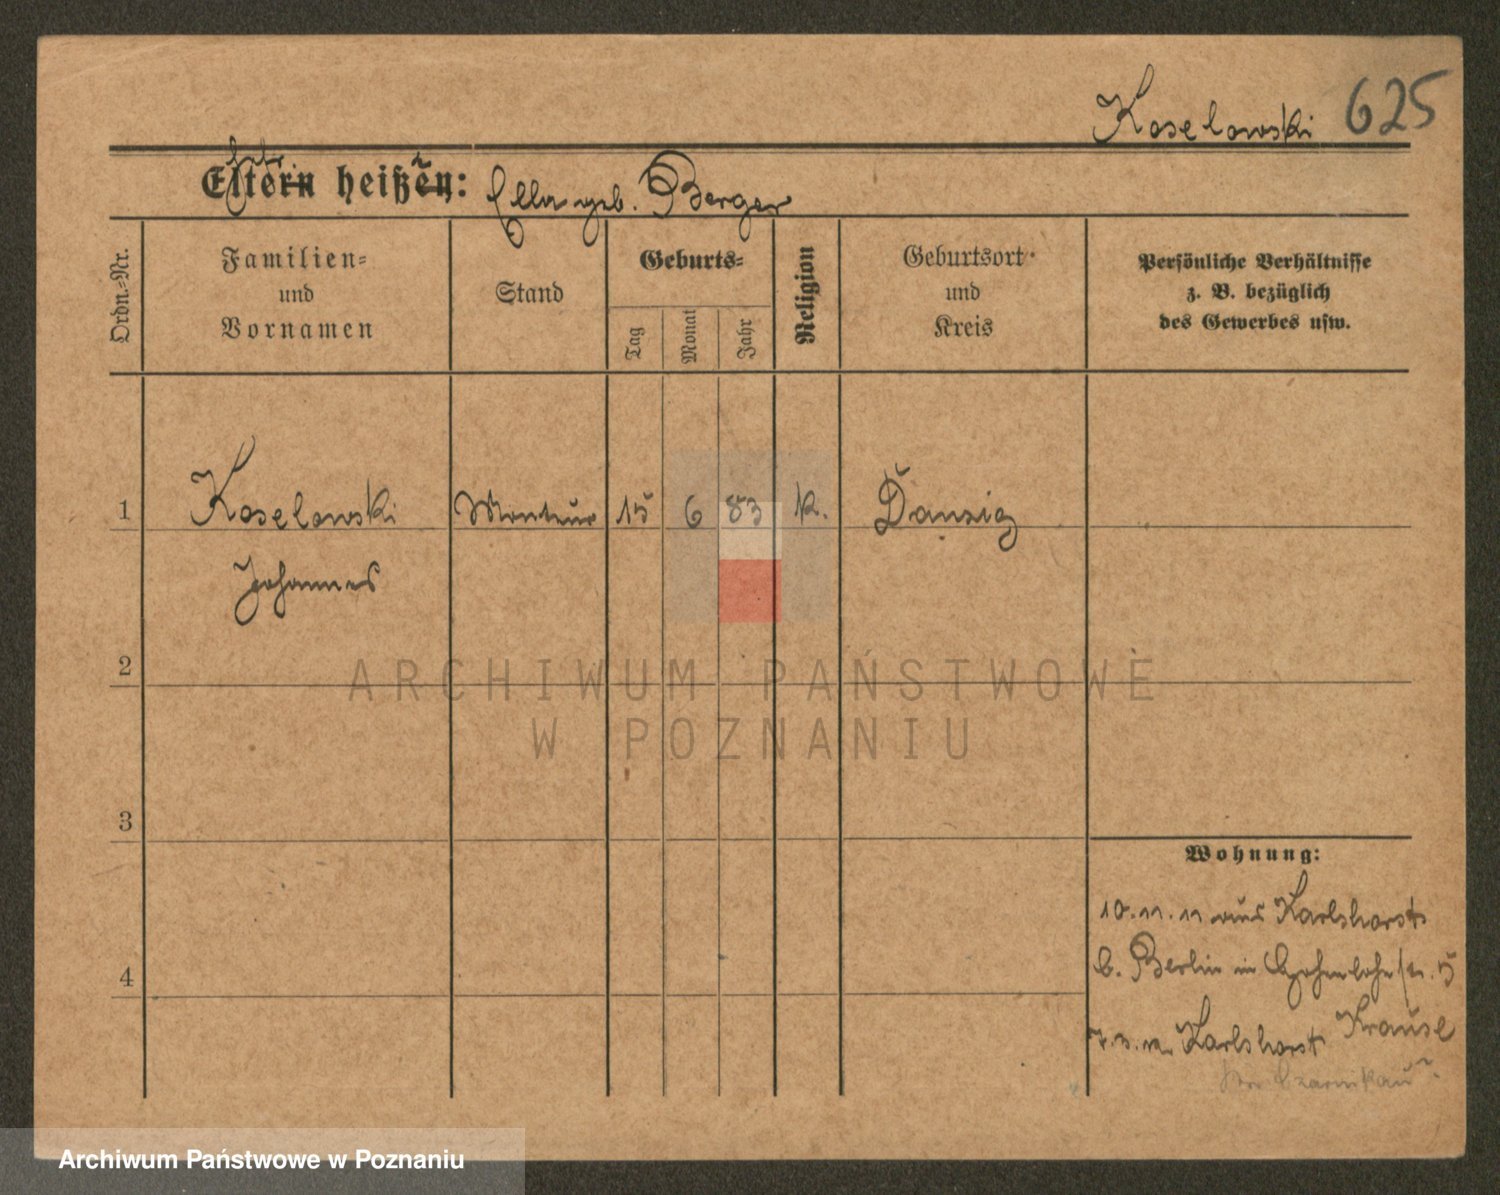 Koselowski 625
Eltern heißen: Ella geb. Berger
Ordn.-Nr.
Familien-
und
Vornamen
Stand
Geburts-
Tag
Monat
Jahr
Religion
Geburtsort
und
Kreis
Persönliche Verhältnisse
z. B. bezüglich
des Gewerbes usw.
1 Koselowski Monteur 15 6 83 k. Danzig
Johannes
2
ARCHIWUM PAŃSTWOWE
W POZNANIU
3
Wohnung:
10.11.11 aus Karlshorst
b. Berlin in Hohenlohestr. 5
Krause
Karlshorst
Czarnikau
4
Archiwum Państwowe w Poznaniu